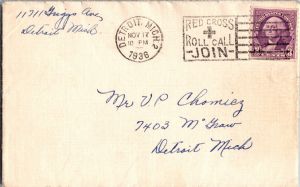 11711 Griggs Ave,
Detroit Mich
DETROIT, MICH. 2
NOV 17
10 PM
1936
RED CROSS
ROLL CALL
JOIN
Mr V P Chomicz
7403 McGraw
Detroit Mich